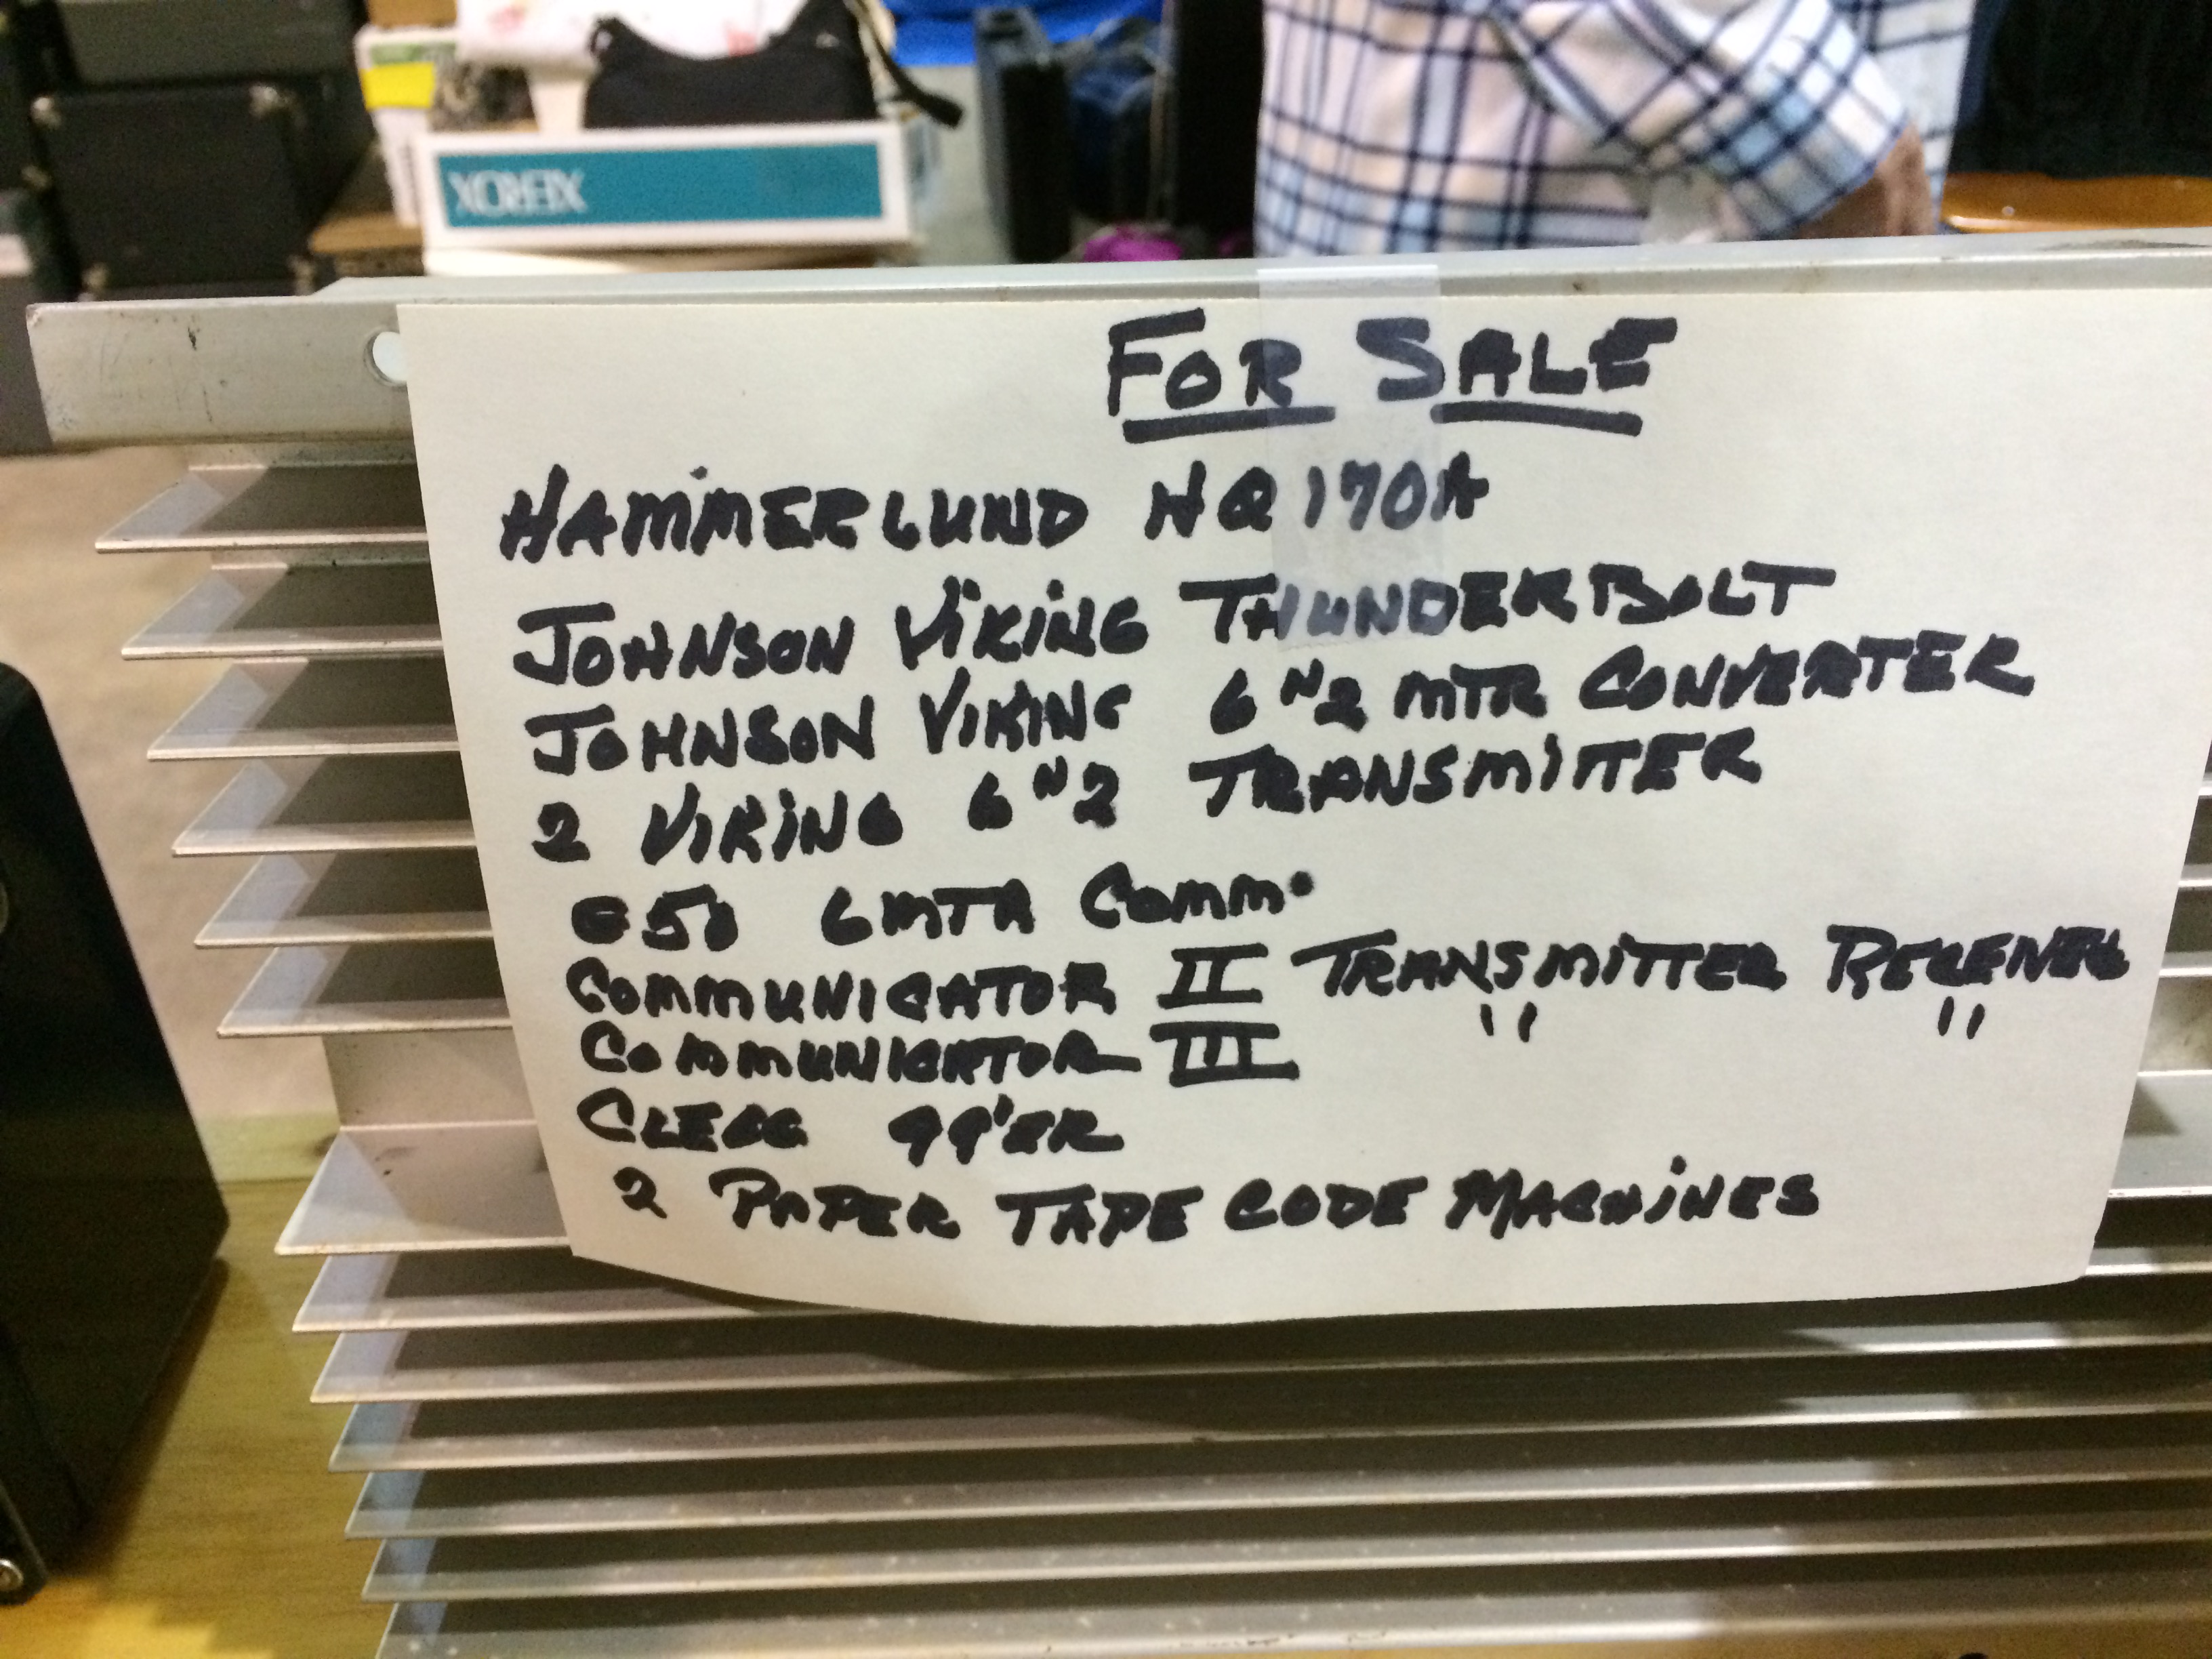 XEROX
FOR SALE
HAMMERLUND HQ170A
JOHNSON VIKING THUNDERBOLT
JOHNSON VIKING 6 N 2 MTR CONVERTER
2 VIKING 6 N 2 TRANSMITTER
G50 6MTR COMM.
COMMUNICATOR II TRANSMITTER RECEIVER
COMMUNICATOR III " "
CLEGG 99'ER
2 PAPER TAPE CODE MACHINES